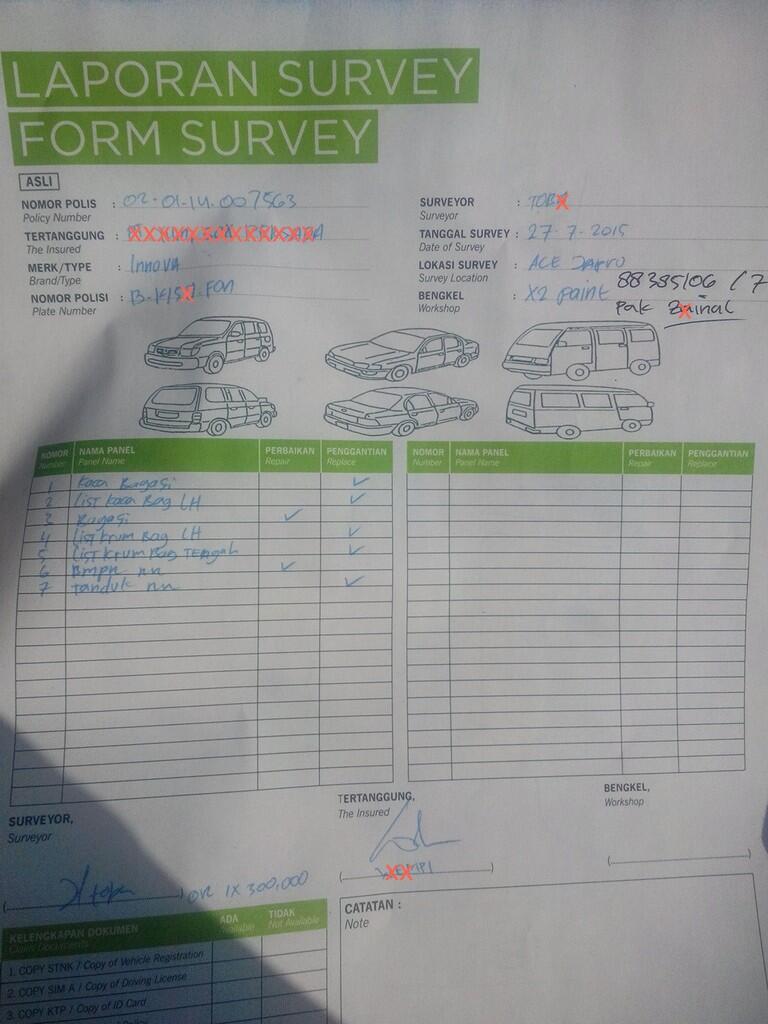 LAPORAN SURVEY
FORM SURVEY
ASLI
NOMOR POLIS : 02-01-14.007563
Policy Number
TERTANGGUNG :
The Insured
MERK/TYPE : Innova
Brand/Type
NOMOR POLISI :
Plate Number
SURVEYOR :
Surveyor
TANGGAL SURVEY : 27-7-2015
Date of Survey
LOKASI SURVEY : ACE
Survey Location
BENGKEL : X2 paint
Workshop
88385106 / 7
Pak
NOMOR NAMA PANEL PERBAIKAN PENGGANTIAN
Number Panel Name Repair Replace
1 Kaca Bagasi ✓
2 List kaca Bag LH ✓
3 Bagasi ✓
4 List krum Bag LH ✓
5 List krum Bag Tengah ✓
6 Bmpr ✓
7 tanduk ✓
NOMOR NAMA PANEL PERBAIKAN PENGGANTIAN
Number Panel Name Repair Replace
SURVEYOR,
Surveyor
OR 1X 300.000
TERTANGGUNG,
The Insured
BENGKEL,
Workshop
KELENGKAPAN DOKUMEN ADA TIDAK
Claim Documents Available Not Available
1. COPY STNK / Copy of Vehicle Registration
2. COPY SIM A / Copy of Driving License
3. COPY KTP / Copy of ID Card
CATATAN :
Note